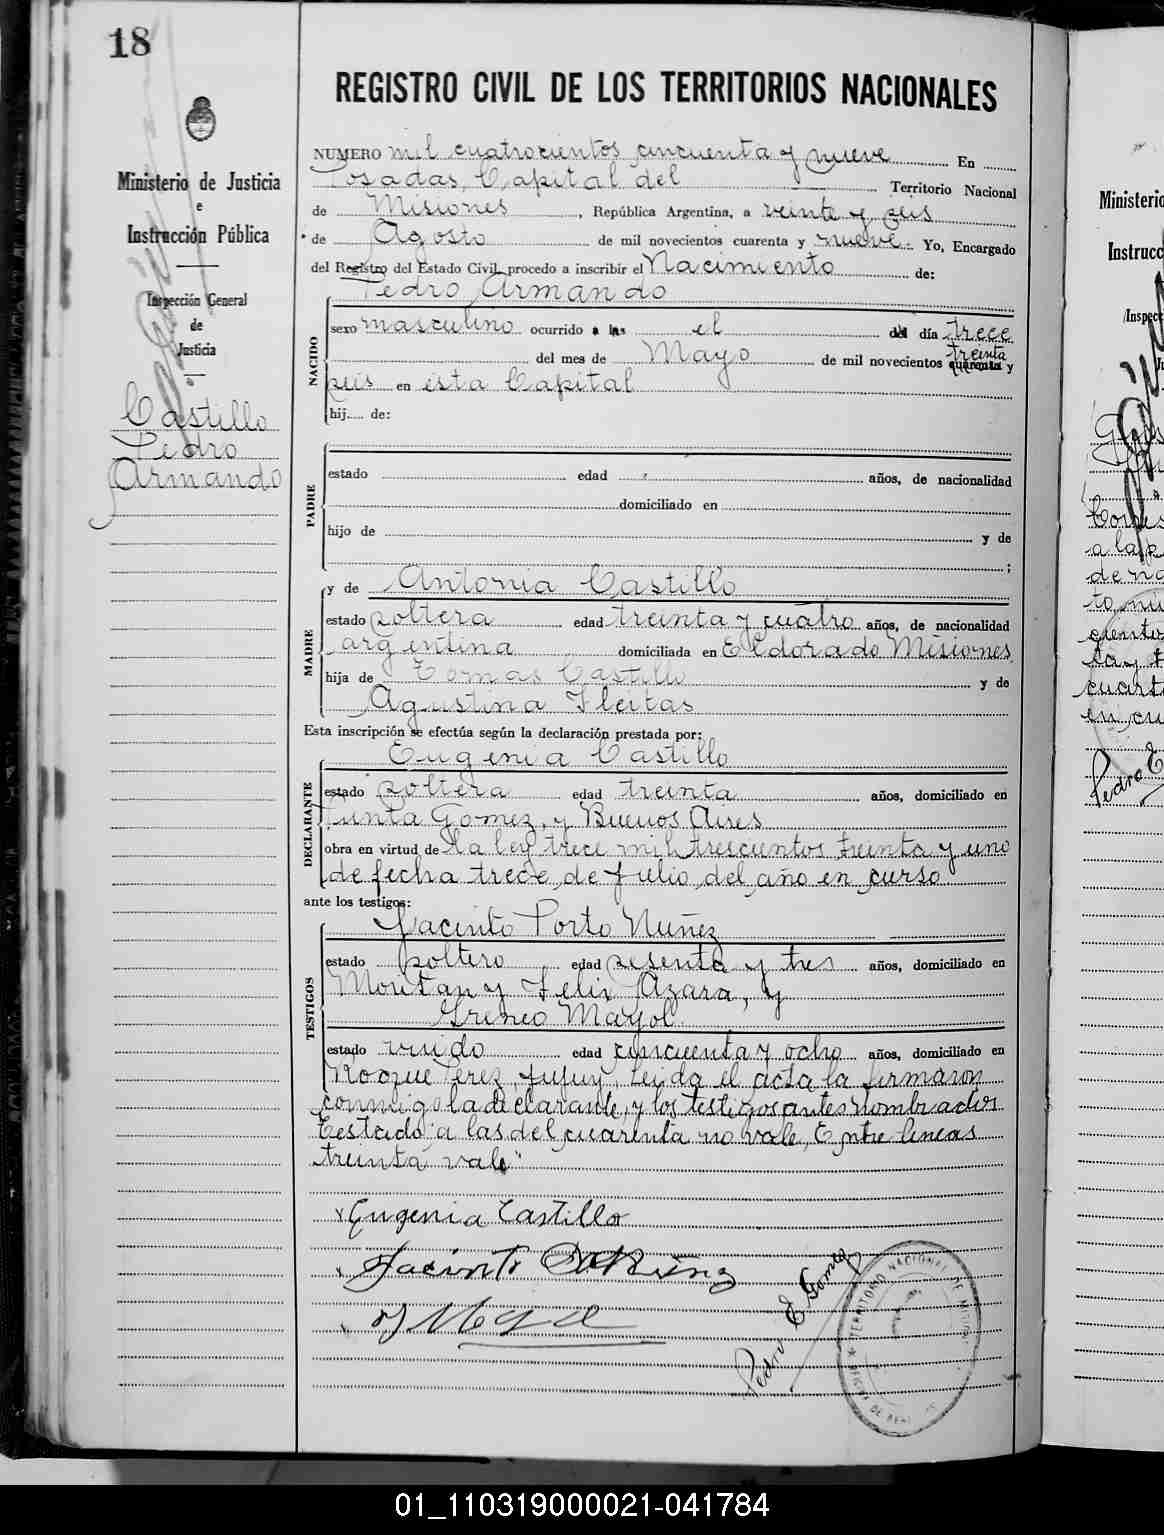 18
REGISTRO CIVIL DE LOS TERRITORIOS NACIONALES
Ministerio de Justicia
e
Instrucción Pública
Inspección General
de
Justicia
Castillo
Pedro
Armando
NUMERO mil cuatrocientos cincuenta y nueve En
Posadas, Capital del Territorio Nacional
de Misiones, República Argentina, a veinte y seis
de Agosto de mil novecientos cuarenta y nueve. Yo, Encargado
del Registro del Estado Civil, procedo a inscribir el Nacimiento de:
Pedro Armando
NACIDO
sexo masculino ocurrido a las el del día trece
del mes de Mayo de mil novecientos cuarenta y
treinta
seis en esta Capital
hij.... de:
PADRE
estado edad años, de nacionalidad
domiciliado en
hijo de y de
;
MADRE
y de Antonia Castillo
estado soltera edad treinta y cuatro años, de nacionalidad
argentina domiciliada en Eldorado Misiones
hija de Tomas Castillo y de
Agustina Fleitas
Esta inscripción se efectúa según la declaración prestada por:
DECLARANTE
Eugenia Castillo
estado soltera edad treinta años, domiciliado en
Junta Gomez, y Buenos Aires
obra en virtud de La ley trece mil trescientos treinta y uno
de fecha trece de Julio del año en curso
ante los testigos:
TESTIGOS
Jacinto Porto Nuñez
estado soltero edad sesenta y tres años, domiciliado en
Moritan y Felix Azara, y
Ireneo Mayol
estado viudo edad cincuenta y ocho años, domiciliado en
Roque Perez, Jujuy, Leida el acta la firmaron
conmigo la declarante, y los testigos antes nombrados
Testado "a las del cuarenta no vale, Entre lineas
treinta vale"
Eugenia Castillo
Jacinto
Pedro E Gomez
TERRITORIO NACIONAL DE
Ministerio
Instrucc
Inspec
a la
de na
Pedro E
01_110319000021-041784